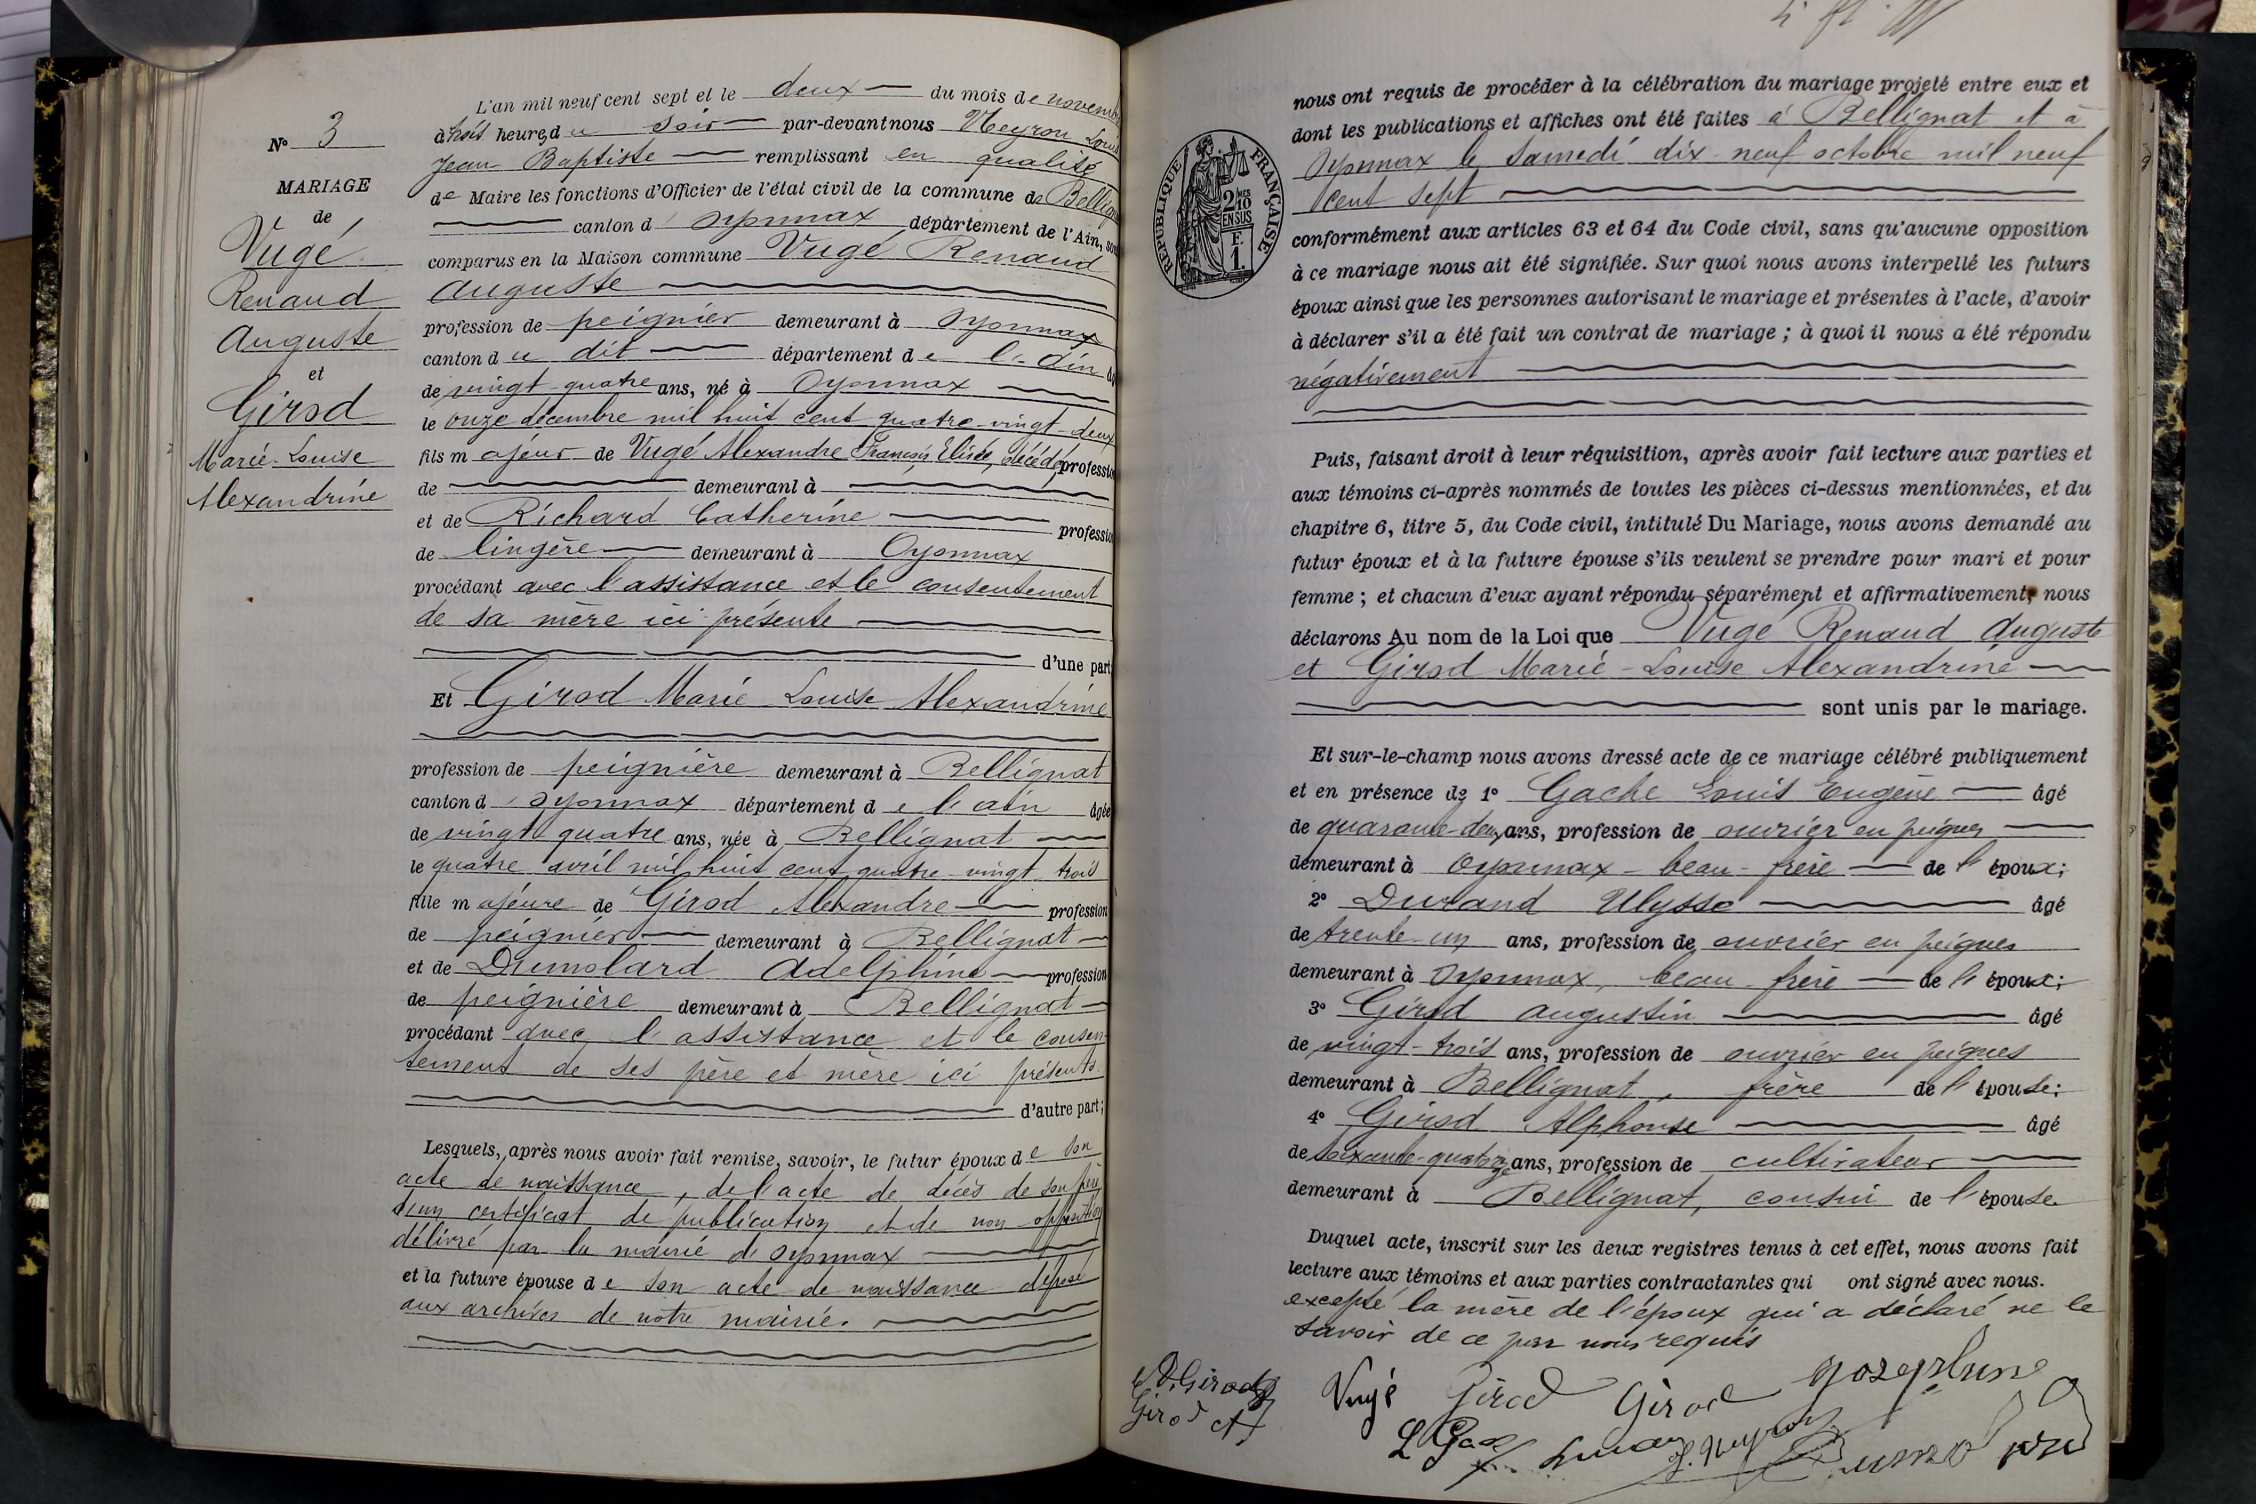 N° 3
MARIAGE
de
Vugé
Renaud
Auguste
et
Girod
Marie-Louise
Alexandrine
L'an mil neuf cent sept et le deux du mois de novemb
à trois heures du soir par-devant nous Neyron Louis
Jean Baptiste remplissant en qualité
de Maire les fonctions d'Officier de l'état civil de la commune de Bellign
canton d'Oyonnax département de l'Ain, son
comparus en la Maison commune Vugé Renaud
Auguste
profession de peignier demeurant à Oyonnax
canton du dit département de l'Ain
de vingt-quatre ans, né à Oyonnax
le onze décembre mil huit cent quatre-vingt-deux
fils majeur de Vugé Alexandre François Elisée, décédé, profession
de demeurant à
et de Richard Catherine profession
de lingère demeurant à Oyonnax
procédant avec l'assistance et le consentement
de sa mère ici présente
d'une part
Et Girod Marie Louise Alexandrine
profession de peignière demeurant à Bellignat
canton d'Oyonnax département de l'ain âgée
de vingt quatre ans, née à Bellignat
le quatre avril mil huit cent quatre-vingt trois
fille majeure de Girod Alexandre profession
de peignier demeurant à Bellignat
et de Dumolard Adelphine profession
de peignière demeurant à Bellignat
procédant avec l'assistance et le consen-
tement de ses père et mère ici présents
d'autre part;
Lesquels, après nous avoir fait remise, savoir, le futur époux de son
acte de naissance, de l'acte de décès de son père
d'un certificat de publication et de non opposition
délivré par la mairie d'Oyonnax
et la future épouse de son acte de naissance déposé
aux archives de notre mairie.
RÉPUBLIQUE FRANÇAISE
2 MES
10
EN SUS
F.
1.
nous ont requis de procéder à la célébration du mariage projeté entre eux et
dont les publications et affiches ont été faites à Bellignat et à
Oyonnax le samedi dix-neuf octobre mil neuf
cent sept
conformément aux articles 63 et 64 du Code civil, sans qu'aucune opposition
à ce mariage nous ait été signifiée. Sur quoi nous avons interpellé les futurs
époux ainsi que les personnes autorisant le mariage et présentes à l'acte, d'avoir
à déclarer s'il a été fait un contrat de mariage ; à quoi il nous a été répondu
négativement
Puis, faisant droit à leur réquisition, après avoir fait lecture aux parties et
aux témoins ci-après nommés de toutes les pièces ci-dessus mentionnées, et du
chapitre 6, titre 5, du Code civil, intitulé Du Mariage, nous avons demandé au
futur époux et à la future épouse s'ils veulent se prendre pour mari et pour
femme ; et chacun d'eux ayant répondu séparément et affirmativement, nous
déclarons Au nom de la Loi que Vugé Renaud Auguste
et Girod Marie-Louise Alexandrine
sont unis par le mariage.
Et sur-le-champ nous avons dressé acte de ce mariage célébré publiquement
et en présence de 1° Gache Louis Eugène âgé
de quarante-deux ans, profession de ouvrier en peignes
demeurant à Oyonnax - beau-frère de l'époux;
2° Durand Ulysse âgé
de trente-un ans, profession de ouvrier en peignes
demeurant à Oyonnax, beau-frère de l'époux;
3° Girod Augustin âgé
de vingt-trois ans, profession de ouvrier en peignes
demeurant à Bellignat, frère de l'épouse;
4° Girod Alphonse âgé
de soixante-quatorze ans, profession de cultivateur
demeurant à Bellignat, cousin de l'épouse.
Duquel acte, inscrit sur les deux registres tenus à cet effet, nous avons fait
lecture aux témoins et aux parties contractantes qui ont signé avec nous.
excepté la mère de l'époux qui a déclaré ne le
savoir de ce par nous requis
A. Girod
Girod A
Vugé Girod Girod Joséphine
L Gache Durand J. Neyron